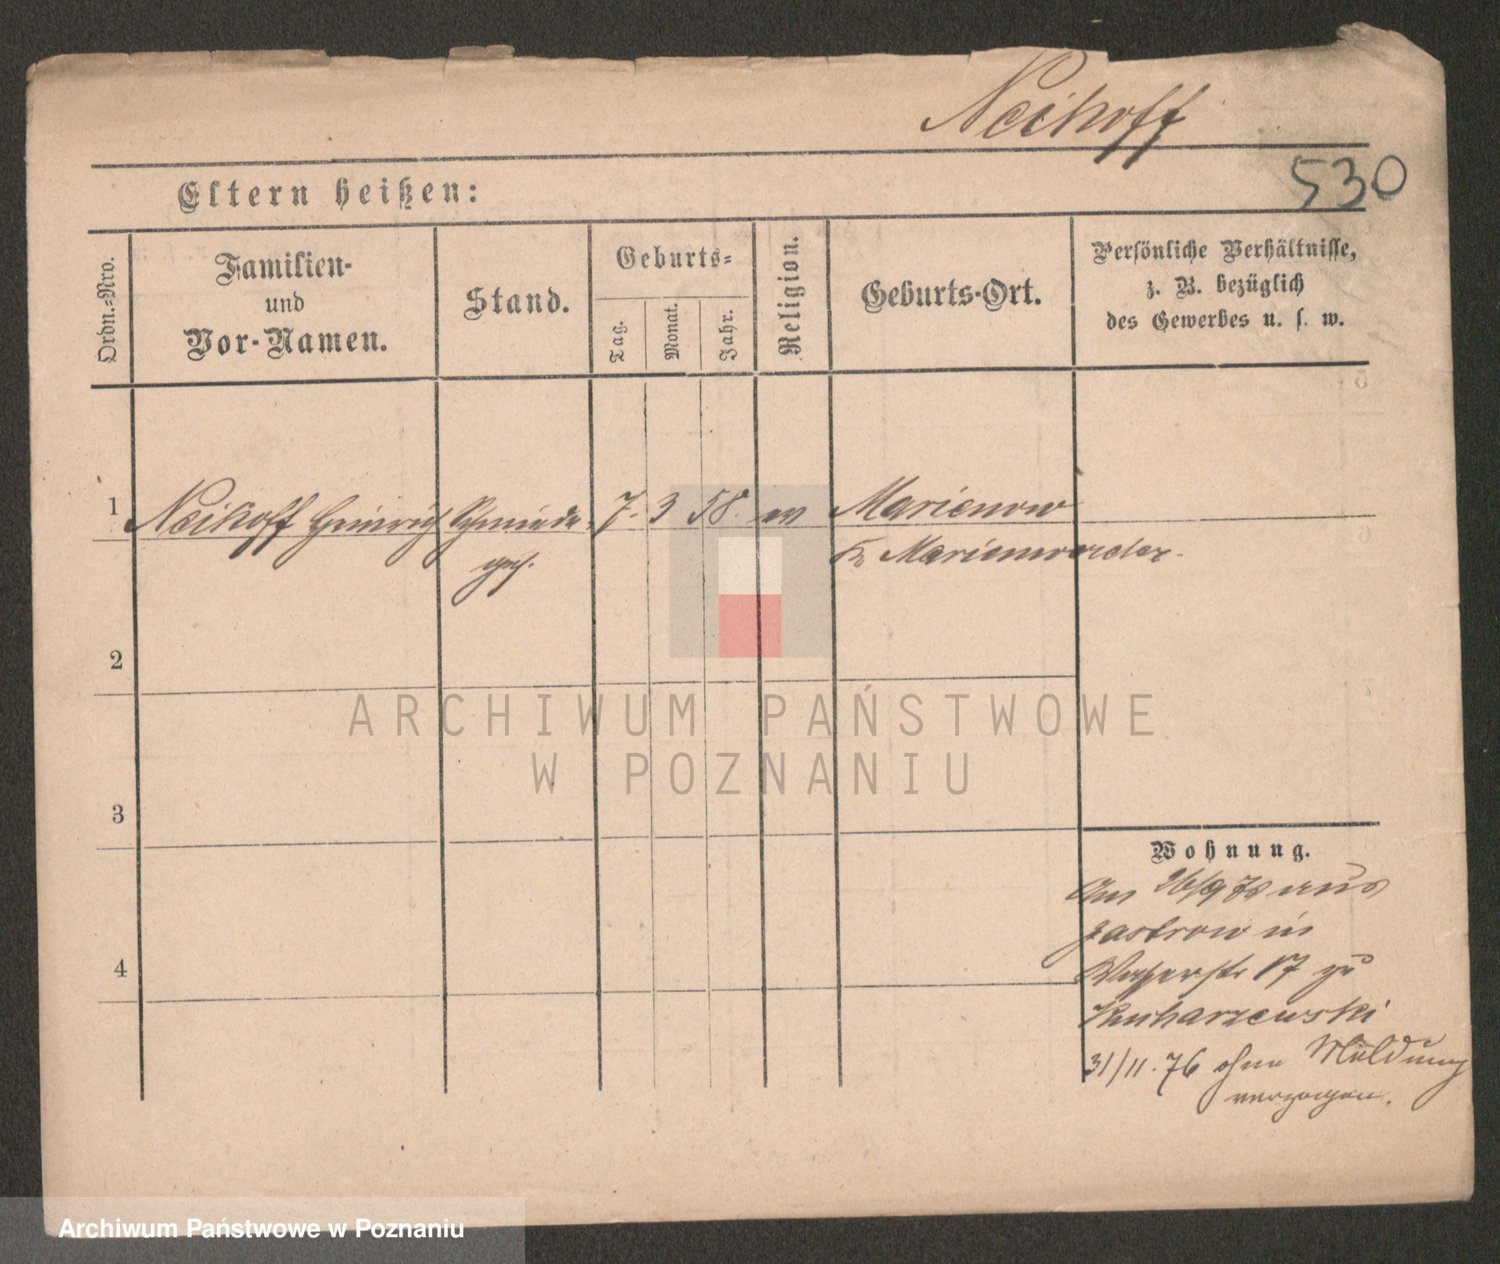 Neikoff
530
Eltern heißen:
Ordn.-Nro.
Familien-
und
Vor-Namen.
Stand.
Geburts-
Tag.
Monat.
Jahr.
Religion.
Geburts-Ort.
Persönliche Verhältnisse,
z. B. bezüglich
des Gewerbes u. s. w.
1
Neikoff Heinrich Schmiede
7. 3 58. ev Marienow
ges.
Kr Marienwerder
2
3
4
Wohnung.
Am 26/9 78 aus
Jastrow in
17 zu
Kucharzewski
31/11. 76 ohne Meldung
verzogen.
ARCHIWUM PAŃSTWOWE
W POZNANIU
Archiwum Państwowe w Poznaniu